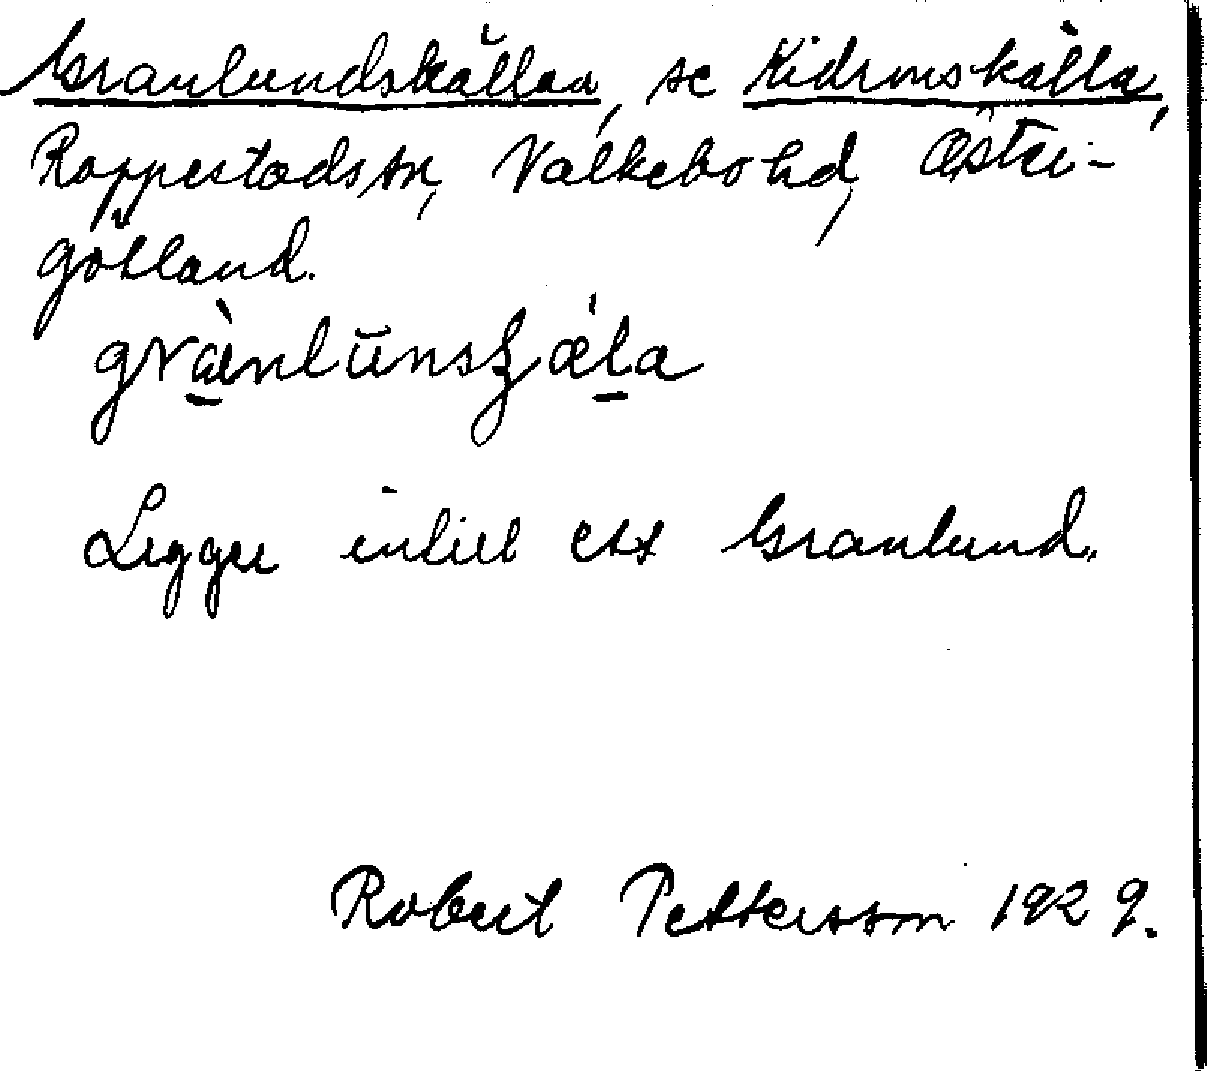 Granlundskällan, se Kidronskälla,
Rappestads sn, Valkebo hd, Öster-
götland.
grànlūnsʒǽla
Ligger intill ett Granlund.
Robert Pettersson 1929.